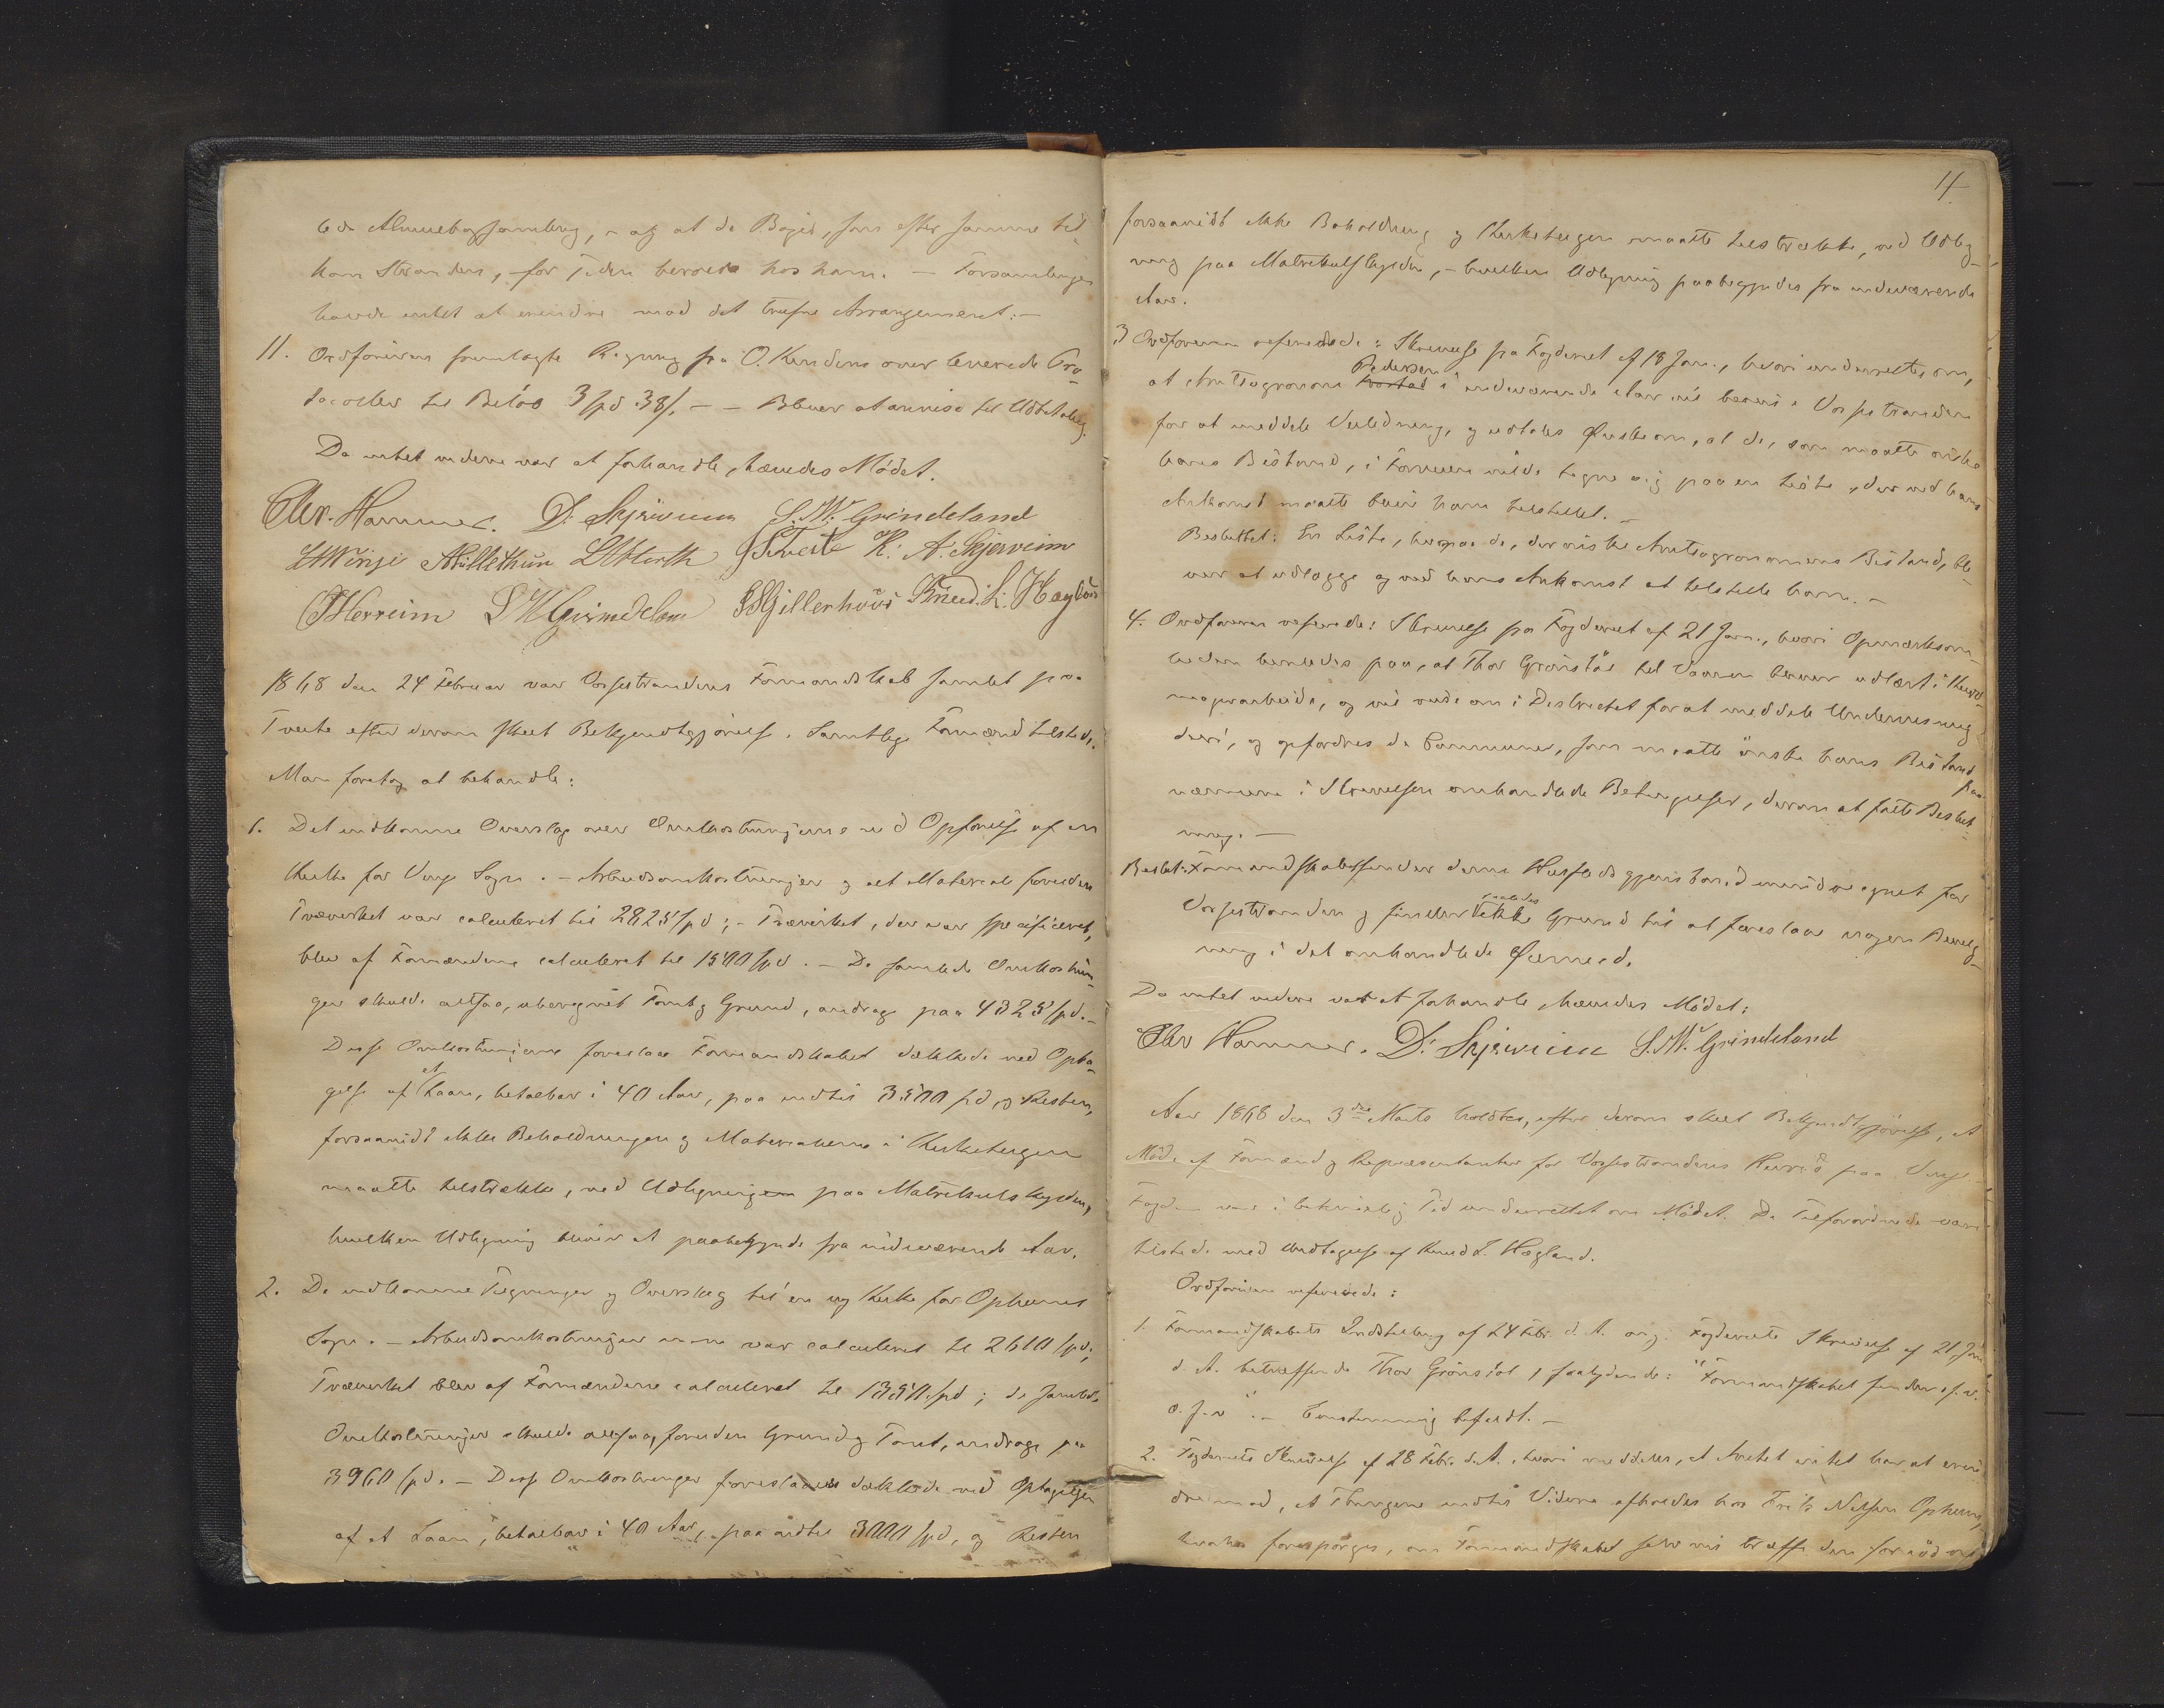 Almuebogsamling, - og at de Bøger, som efter samme til-
kom Stranden, for Tiden beroede hos ham. - Forsamlingen
havde intet at erindre mod det trufne Arrangement. -
11. Ordføreren fremlagte Regning fra O. Knudsen over leverede Pro-
tocoller til Beløb 3 spd. 38 s. - - Blev at anvise til Udbetaling.
Da intet videre var at forhandle, hævedes Mødet.
Chr. Hammer. D. Skjerveim S. W. Grindeland
Vinje Millethun Tveite K. A. Skjerveim
Herreim Grindeland Gjellerhøvi Knud. L. Hagland
1868 den 24 Februar var Vossestrandens Formandskab samlet paa
Tveite efter derom skeet Bekjendtgjørelse. Samtlige Formænd tilstede.
Man foretog at behandle:
1. Det indkomne Overslag over Omkostningerne ved Opførelse af en
Kirke for Vinje Sogn. - Arbeidsomkostninger og alt Materiale foruden
Træverket var calculeret til 2825 spd; - Træverket, der var specificeret,
blev af Formændene calculeret til 1500 spd. - De samlede Omkostnin-
ger skulde altsaa, uberegnet Tomt og Grund, andrage paa 4325 spd. -
Disse Omkostningerne foreslaar Formandskabet dækkede ved Opta-
gelse af et Laan, betalbar i 40 Aar, paa indtil 3500 spd, og Resten,
forsaavidt ikke Beholdningen og Materialerne i Kirketeigen
maatte tilstrække, ved Udligningen paa Matrikulskylden,
hvilken Udligning bliver at paabegynde fra indeværende Aar.
2. De indkomne Tegninger og Overslag til en ny Kirke for Ophems
Sogn. - Arbeidsomkostninger var calculeret til 2610 spd;
Træverket blev af Formændene calculeret til 1350 spd; de samlede
Omkostninger skulde altsaa, foruden Grund og Tomt, andrage paa
3960 spd. - Disse Omkostninger foreslaaes dækkede ved Optagelsen
af et Laan, betalbar i 40 Aar, paa indtil 3000 spd, og Resten
11
forsaavidt ikke Beholdning og Kirketeigen maatte tilstrække, ved Udlig-
ning paa Matrikulskylden, - hvilken Udligning paabegyndes fra indeværende
Aar.
3 Ordføreren refererede: Skrivelse fra Fogderiet af 18 Jan., hvori underrettes om,
Pedersen
at Amtsagronom i indeværende Aar vil bereise Vossestranden
for at meddele Veiledning, og udtales Ønske om, at de, som maatte ønske
hans Bistand, i Forveien vilde tegne sig paa en Liste, der ved hans
Ankomst maatte blive ham tilstillet. -
Besluttet: En Liste, hvorpaa de, der ønske Amtsagronomens Bistand, bli-
ver at udlægge og ved hans Ankomst at tilstille ham. -
4. Ordføreren refererede: Skrivelse fra Fogderiet af 21 Jan., hvori Opmærksom-
heden henledes paa, at Thor Grønstøl til Vaaren bliver udlært i
magerarbeide, og vil reise om i Districtet for at meddele Underviisning
deri, og opfordres de Communer, som maatte ønske hans Bistand paa
nærmere i Skrivelsen omhandlede Betingelser, derom at fatte Beslut-
ning. -
Beslut: Formandskabet finder denne Husflidsgjenstand mindre egnet for
Vossestranden og finder saaledes ikke Grund til at foreslaa nogen Bevilg-
ning i det omhandlede Øiemed.
Da intet videre var at forhandle, hævedes Mødet:
Chr Hammer. D. Skjerveim S. W. Grindeland
Aar 1868 den 3die Marts holdtes, efter derom skeet Bekjendtgjørelse, et
Møde af Formænd og Repræsentanter for Vossestrandens Herred paa Vinje.
Fogden var i betimelig Tid underrettet om Mødet. De Tilforordnede vare
tilstede med Undtagelse af Knud L. Hagland.
Ordføreren refererede:
1. Formandskabets Indstilling af 24 Febr. d. A. ang. Fogderiets Skrivelse af 21 Jan
d. A. betræffende Thor Grønstøl, saalydende: "Formandskabet finder o. s. v.
o. s. v." - Eenstemmig bifaldt. -
2. Fogderiets Skrivelse af 28 Febr. d. A., hvori meddeles, at Amtet intet har at erin-
dre imod, at Thingene indtil Videre afholdes hos Frik Nilssen Ophem,
hvorhos forespørges, om Formandskabet selv vil træffe den fornødne